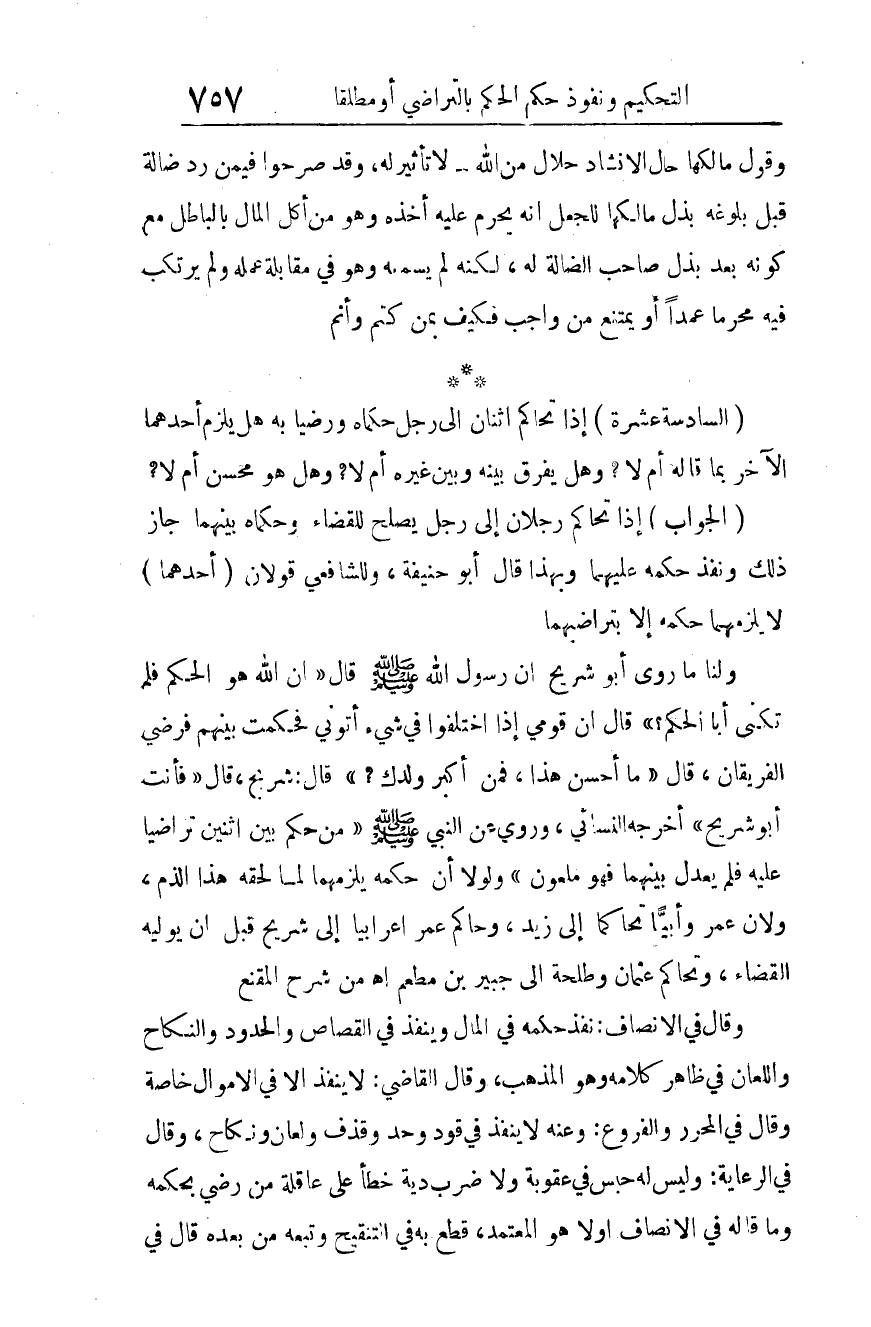 التحكيم ونفوذ حكم الحكم بالتراضي أو مطلقا ٧٥٧
وقول مالكها حال الانشاد حلال من الله ــ لا تأثير له، وقد صرحوا فيمن رد ضالة
قبل بلوغه بذل مالكها للجعل انه يحرم عليه أخذه وهو من أكل المال بالباطل مع
كونه بعد بذل صاحب الضالة له ، لكنه لم يسمعه وهو في مقابلة عمله ولم يرتكب
فيه محرما عمداً أو يمتنع من واجب فكيف بمن كتم وأثم
***
( السادسة عشرة ) إذا تحاكم اثنان الى رجل حكماه ورضيا به هل يلزم أحدهما
الآخر بما قاله أم لا ? وهل يفرق بينه وبين غيره أم لا? وهل هو محسن أم لا?
( الجواب ) إذا تحاكم رجلان إلى رجل يصلح للقضاء وحكماه بينهما جاز
ذلك ونفذ حكمه عليهما وبهذا قال أبو حنيفة ، وللشافعي قولان ( أحدهما )
لا يلزمهما حكمه إلا بتراضيهما
ولنا ما روى أبو شريح ان رسول الله ﷺ قال « ان الله هو الحكم فلم
تكنى أبا الحكم؟» قال ان قومي إذا اختلفوا في شيء أتوني فحكمت بينهم فرضي
الفريقان ، قال « ما أحسن هذا ، فمن أكبر ولدك ? » قال: شريح، قال « فأنت
أبو شريح» أخرجه النسائي ، وروي عن النبي ﷺ « من حكم بين اثنين تراضيا
عليه فلم يعدل بينهما فهو ملعون » ولولا أن حكمه يلزمهما لما لحقه هذا الذم ،
ولان عمر وأبيًّا تحاكما إلى زيد ، وحاكم عمر اعرابيا إلى شريح قبل ان يوليه
القضاء ، وتحاكم عثمان وطلحة الى جبير بن مطعم اه من شرح المقنع
وقال في الانصاف: نفذ حكمه في المال وينفذ في القصاص والحدود والنكاح
واللعان في ظاهر كلامه وهو المذهب، وقال القاضي: لا ينفذ الا في الاموال خاصة
وقال في المحرر والفروع: وعنه لا ينفذ في قود وحد وقذف ولعان ونكاح ، وقال
في الرعاية: وليس له حبس في عقوبة ولا ضرب دية خطأ على عاقلة من رضي بحكمه
وما قاله في الانصاف اولا هو المعتمد، قطع به في التنقيح وتبعه من بعده قال في